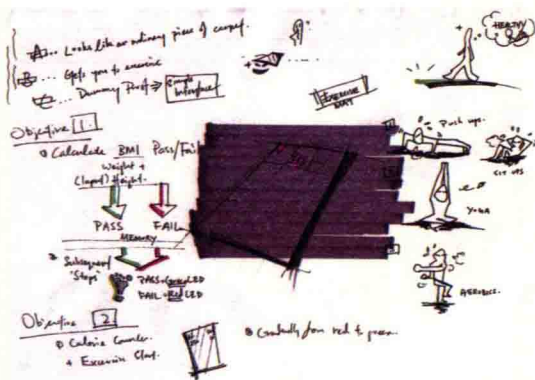 A... Looks like an ordinary piece of carpet.
B... Gets you to exercise
C... Dummy Proof → Simple Interface
HEALTHY
EXERCISE MAT
Objective 1.
Calculate BMI Pass/Fail
Weight +
(Input) Height.
PASS FAIL
MEMORY
Subsequent "Steps"
PASS = Green LED
FAIL = Red LED
Push ups.
SIT UPS
YOGA
AEROBICS.
Objective 2
Calorie Counter.
+ Excersise Chart.
Gradually from red to green.